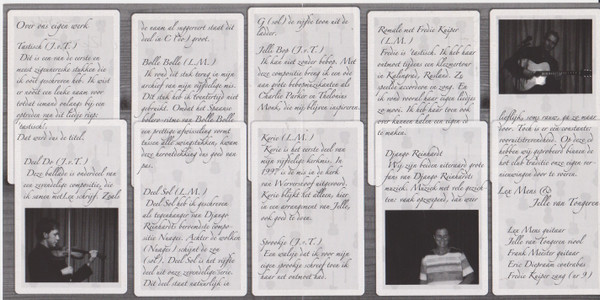 Over ons eigen werk
Tastisch (J.v.T.)
Dit is een van de eerste en
meest eigenaardige stukken die
ik ooit geschreven heb. Ik wist
er nooit een leuke naam voor
totdat iemand onlangs bij een
optreden van dit liedje riep:
tastisch!
Dat werd dus de titel.
Deel Do (J.v.T.)
Deze ballade is onderdeel van
een zevendelige compositie, die
ik samen met Lex schrijf. Zoals
de naam al suggereert staat dit
deel in C (do) groot.
Bolla Bolla (L.M.)
Ik vond dit stuk terug in mijn
archief van mijn vijftiende mis.
Dit stuk heb ik toentertijd niet
gebruikt. Omdat het Spaanse
bolero-ritme van Bolla Bolla
een prettige afwisseling vormt
tussen alle swingstukken, kwam
deze herontdekking ons goed van
pas.
Deel Sol (L.M.)
Deel Sol heb ik geschreven
als tegenhanger van Django
Reinhardts beroemdste compo-
sitie Nuages. Achter de wolken
(Nuages) schijnt de zon
(sol). Deel Sol is het vijfde
deel uit onze zevendelige serie.
Dit deel staat natuurlijk in
G (sol) de vijfde toon uit de
ladder.
Jelle Bop (J.v.T.)
Ik kan niet zonder bebop. Met
deze compositie breng ik een ode
aan grote bebopmuzikanten als
Charlie Parker en Thelonius
Monk, die mij blijven inspireren.
Kyrie (L.M.)
Kyrie is het eerste deel van
mijn vijftiende kerkmis. In
1997 is de mis in de kerk
van Wervershoof uitgevoerd.
Kyrie blijkt het alleen, hier
in een arrangement van Jelle,
ook goed te doen.
Spookje (J.v.T.)
Een walsje dat ik voor mijn
eigen spookje schreef toen ik
haar net ontmoet had.
Romale met Fredie Kuiper
(L.M.)
Fredie is 'tastisch'. Ik heb haar
ontmoet tijdens een klezmertour
in Kaliningrad, Rusland. Ze
speelde accordeon en zong. En
ik vond vooral haar eigen liedjes
zo mooi. Ik heb haar toen ook
over kunnen halen een eigen cd
te maken.
Django Reinhardt
Wij zijn beiden uiteraard grote
fans van Django Reinhardts
muziek. Muziek met vele gezich-
ten: vaak opzwepend, dan weer
lieflijk, soms rauw, ga zo maar
door. Toch is er één constante:
vooruitstrevendheid. Op deze cd
hebben wij geprobeerd binnen de
hot club traditie onze eigen ver-
nieuwingen door te voeren.
Lex Mens &
Jelle van Tongeren
Lex Mens guitaar
Jelle van Tongeren viool
Frank Meester guitaar
Eric Diepraam contrabas
Fredie Kuiper zang (nr 9)